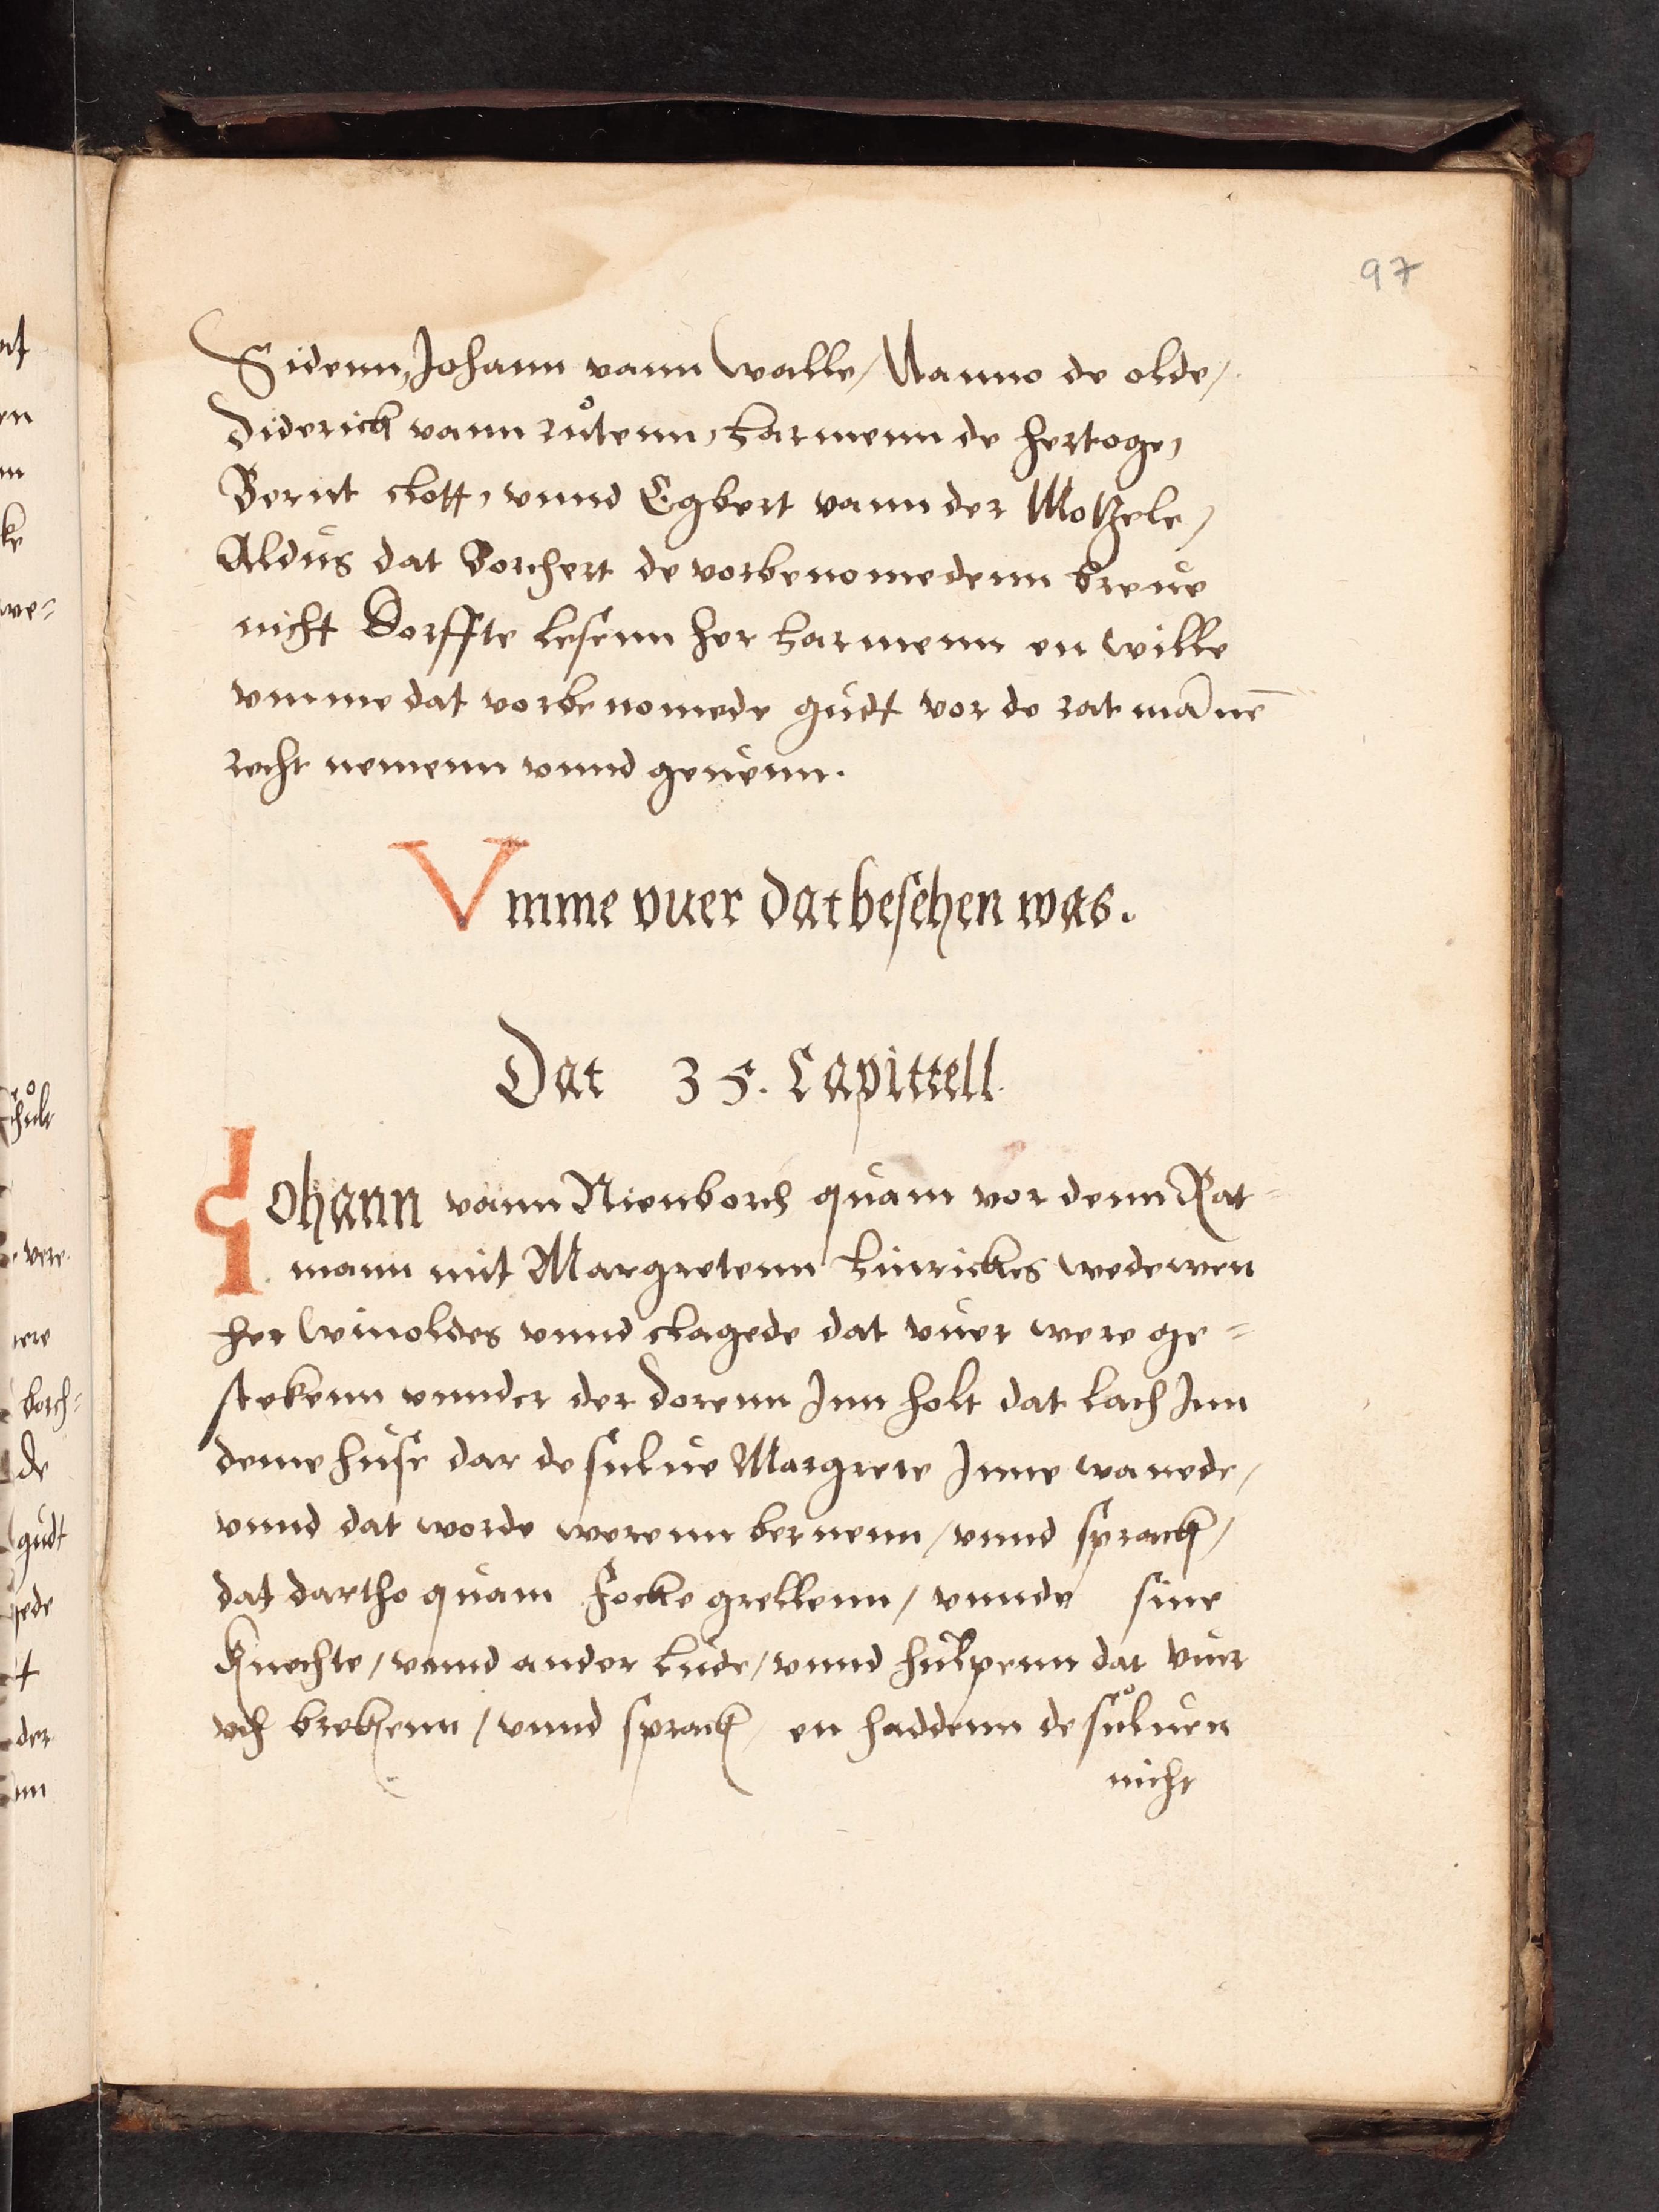 97
Sidenn, Johann vann Walle / Nanno de olde /
Diderick vann růtenn, Harmenn de Hertoge,
Bernt Clott, vnnd Egbert vann der Motzele /
Aldus dat Borchert de vorbenomedenn breue
nicht Dorffte lesenn her Harmenn en wille
vmme dat vorbenomede gudt vor de ratmānē
recht nemenn vnnd geuenn.
Vmme vuer dat besehen was.
Dat 35. Capittell.
Johann vann Nienborch quam vor denn Rat=
mann mit Margretenn Hinrickes wedewen
her Winoldes vnnd clagede dat vuer were ge=
stekenn vnnder der dorenn Inn holt dat lach Inn
deme huse dar de sulue Margrete Inne wanede /
vnnd dat worde werenn bernenn / vnnd sprack /
dat dartho quam Focke grellenn / vnnde sine
Knechte / vnnd ander lude / vnnd hulpenn dat vuer
vth brekenn / vnnd sprack en haddenn de sůluen
nicht